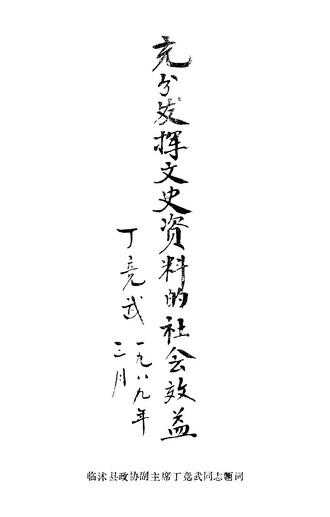 充分发挥文史资料的社会效益
丁竞武
一九八九年
三月
临沭县政协副主席丁竞武同志题词